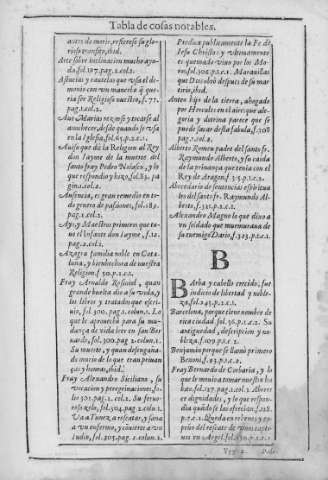 Tabla de cosas notables.
antes de morir, refierese su glo-
rioso transito, ibid.
Arte sobre inclinacion mucho ayu-
da. fol. 187. pag. 1. col. 2.
Astucias y cautelas que usa el de-
monio con un mancebo q̃ que-
ria ser Religioso nuestro, f. 77.
pag. 1. col. 2.
Aue Marias rezarse y tocarse al
anochecer, desde quando se vsa
en la Iglesia, fol. 65. p. 1. c. 1.
Auiso que dà la Religion al Rey
don Iayme de la muerte del
santo fray Pedro Nolasco, y lo
que respondio y hizo, fol. 89. pa
gina. col. 2.
Ausencia, es gran remedio en to-
do genero de passiones, fol. 182.
pag. 2. col. 2.
Ayo y Maestros primeros que tu-
uo el Infante don Iayme, f. 12.
pag. 1. col. 2.
Azagra familia noble en Cata-
luña, y bienhechora de nuestra
Religion. f. 30. p. 2. c. 2.
Fray Arnaldo Rossiñol, quan
grande buelta dio a su vida, y
los libros y tratados que escri-
uio, fol. 300. pag. 2. colun. 1. Lo
que le aprouechò para su mu-
dança de vida leer en san Ber-
nardo, fol. 300. pag. 2. colun. 1.
Su muerte, y quan desengaña-
do murio de lo que tratan princi-
pes y honras, ibid.
Fray Alexandro Siciliano, su
vocacion y peregrinaciones, fo-
lio 301. pag. 2. col. 2. Su feruo-
roso zelo, fol. 304. pag. 2. col. 1.
Va a Tunez a rescatar, y sana
a vn enfermo, y conuierte a vn
Iudio, fol. 305. pag. 1. colun. 1.
Predica publicamente la Fe de
Iesu Christo: y vltimamente
es quemado viuo por los Mo-
ros, fol. 305. p. 1. c. 1. Marauillas
que Dios obrò despues de su mar-
tirio, ibid.
Anteo hijo de la tierra, ahogado
por Hercules en el aire: que ale-
goria y dotrina parece que se
puede sacar desta fabula, f. 308
pag. 1. col. 2.
Alberto Romeu padre del santo fr.
Raymundo Alberto, y su caida
de la priuança que tenia con el
Rey de Aragon, f. 315. p. 1. c. 2.
Abecedario de sentencias espiritua
les del santo fr. Raymundo Al-
berto, f. 321. p. 1. c. 2.
Alexandro Magno lo que dixo a
vn soldado que murmuraua de
su enemigo Dario, f. 323. p. 2. c. 1.
B
Barba y cabello crecido, fue
indicio de libertad y noble-
za, fol. 243. p. 2. c. 2.
Barcelona, porque tiene nombre de
rica ciudad, fol. 36. p. 1. c. 2. Su
antiguedad, descripcion y no-
bleza, f. 109. p. 1. c. 2.
Benjamin porque se llamò primero
Benoni, f. 23. p. 2. c. 2.
Fray Bernardo de Corbaria, y lo
que le mouio a tomar nuestro ha-
bito, fol. 117. pag. 1. col. 2. Aborre-
cio dignidades, y lo que respon-
dia quando se las ofrecian, f. 118.
p. 2. c. 1. Queda en rehenes, y em-
peños del rescate de vnos cauti-
uos en Argel, fol. 130. p. 2. c. 1.